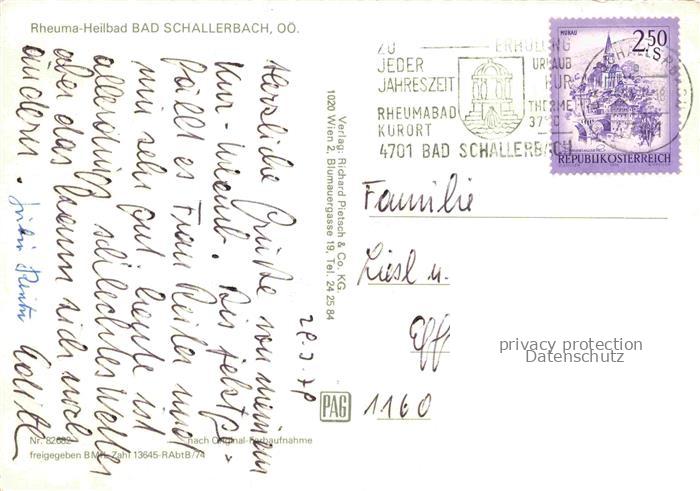 Rheuma-Heilbad BAD SCHALLERBACH, OÖ.
Herzliche Grüße von meinem
Kur-Urlaub. Bis jetzt ge-
fällt es Frau Reiter und
mir sehr gut heute ist
allerdings schlechtes Wetter
aber das kann sich noch
ändern.
Verlag: Richard Pietsch & Co. KG.
1020 Wien 2, Blumauergasse 19, Tel. 24 25 84
ZU
JEDER
JAHRESZEIT
RHEUMABAD
KURORT
4701 BAD SCHALLERBACH
ERHOLUNG
URLAUB
KUR
THERME
37°C
MURAU
2.50
S
REPUBLIK ÖSTERREICH
Familie
Liesl u.
1160
privacy protection
Datenschutz
PAG
Nr. 82682 nach Original-Farbaufnahme
freigegeben BMfL Zahl 13645-RAbtB/74